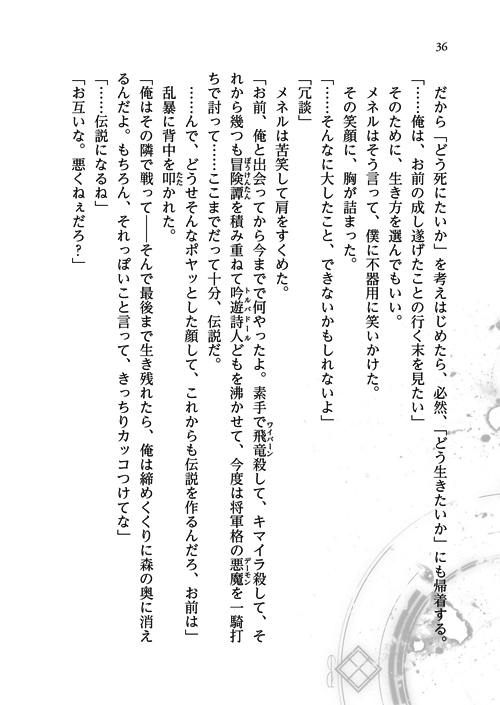 36
だから「どう死にたいか」を考えはじめたら、必然、「どう生きたいか」にも帰着する。
「……俺は、お前の成し遂げたことの行く末を見たい」
そのために、生き方を選んでもいい。
メネルはそう言って、僕に不器用に笑いかけた。
その笑顔に、胸が詰まった。
「……そんなに大したこと、できないかもしれないよ」
「冗談」
メネルは苦笑して肩をすくめた。
「お前、俺と出会ってから今までで何やったよ。素手で飛竜殺して、キマイラ殺して、そ
れから幾つも冒険譚を積み重ねて吟遊詩人どもを沸かせて、今度は将軍格の悪魔を一騎打
ちで討って……ここまでだって十分、伝説だ。
……んで、どうせそんなポヤッとした顔して、これからも伝説を作るんだろ、お前は」
乱暴に背中を叩かれた。
「俺はその隣で戦って――そんで最後まで生き残れたら、俺は締めくくりに森の奥に消え
るんだよ。もちろん、それっぽいこと言って、きっちりカッコつけてな」
「……伝説になるね」
「お互いな。悪くねぇだろ？」
ワイバーン
ぼうけんたん
トルバドール
デーモン
たた